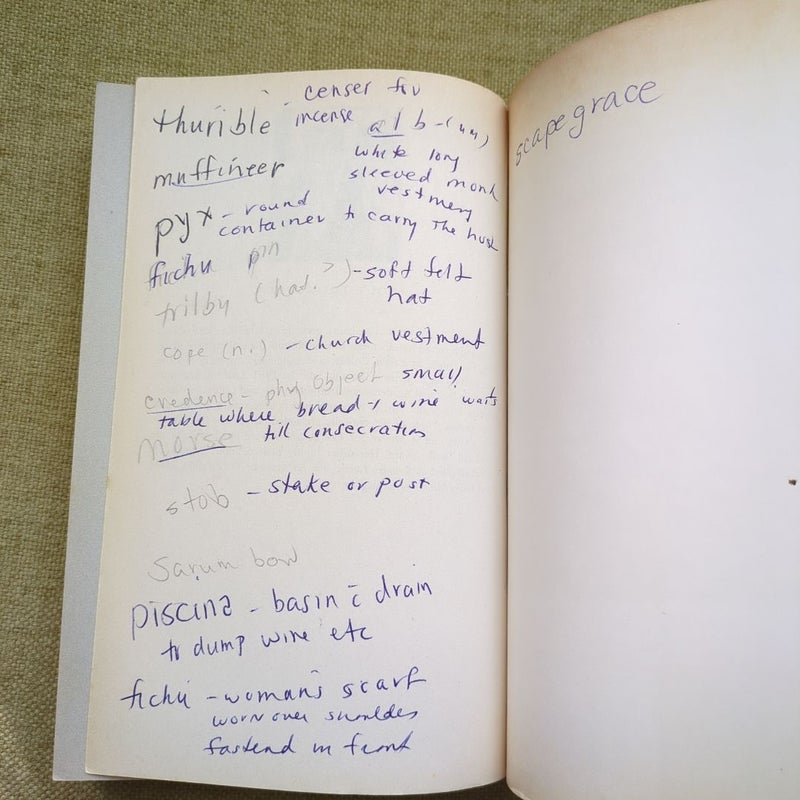 thurible - censer for
incense
alb - (nn)
white long
sleeved monk
vestment
muffineer
pyx - round
container to carry the host
fichu pin
trilby (hat?) - soft felt
hat
cope (n.) - church vestment
credence - phy object small
table where bread + wine waits
till consecration
morse
stob - stake or post
Sarum bow
piscina - basin c̄ drain
to dump wine etc
fichu - woman's scarf
worn over shoulder
fastend in front
scapegrace